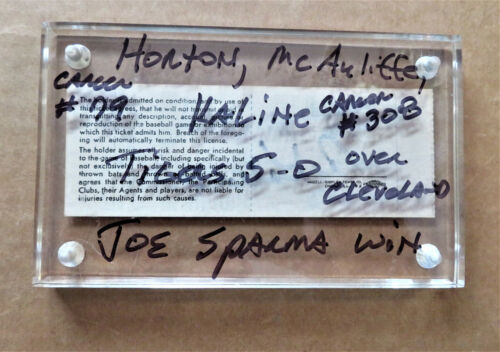 HORTON, MCAULIFFE,
CAREER
#99 KALINE CAREER
#308
The holder admitted on condition by use of
this ticket agrees, that he will not transmit or aid in
transmitting any description, account,
reproduction of the baseball game exhibition to
which this ticket admits him. Breach of the forego-
ing will automatically terminate this license.
The holder assumes all risk and danger incidental
to the game of baseball including specifically (but
not exclusively) the danger of being injured by
thrown bats
agrees that the Commissioner, the participating
Clubs, their Agents and players, are not liable for
injuries resulting from such causes.
TIGERS 5-0 OVER
CLEVELAND
JOE SPARMA WIN